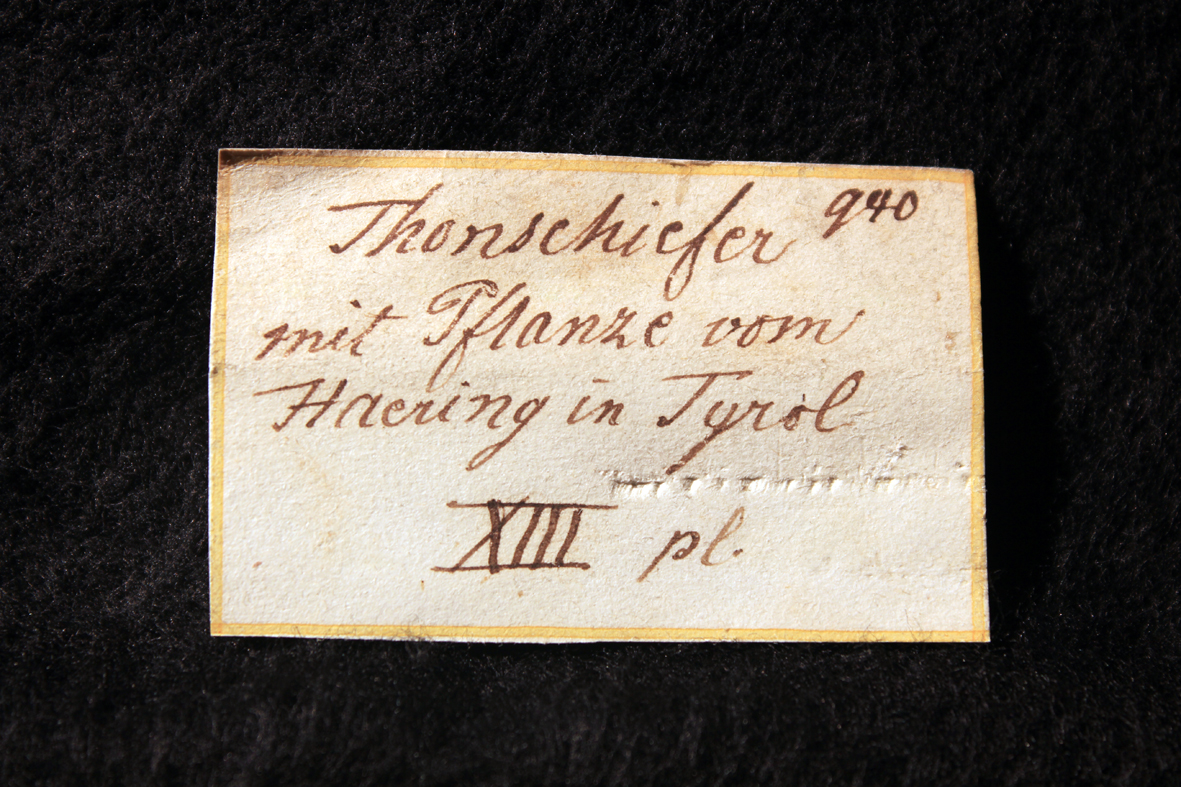 Thonschiefer 940
mit Pflanze vom
Haering in Tyrol
XIII pl.